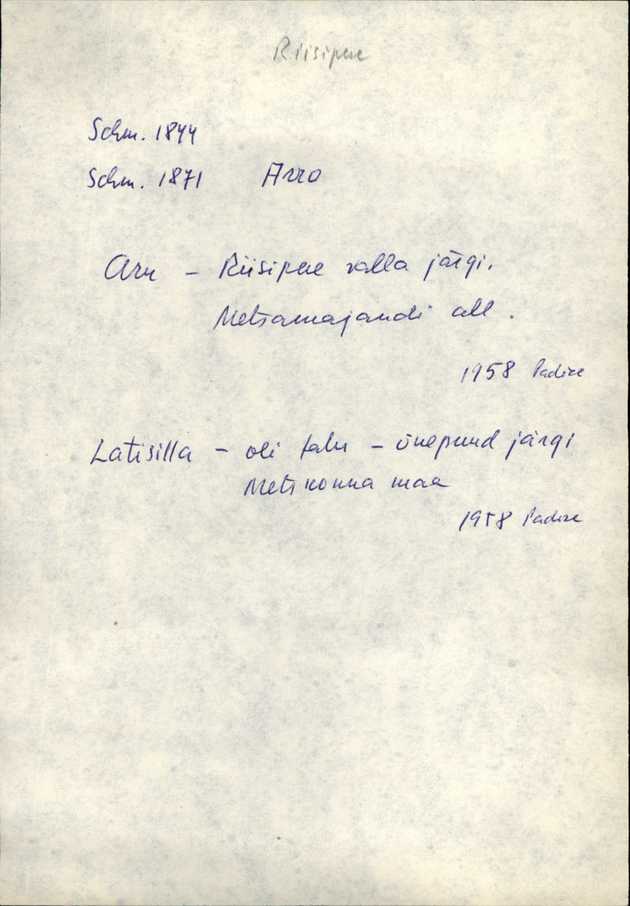 Riisipere
Schm. 1844
Schm. 1871 Arro
Aru - Riisipere valla järgi.
Metsamajandi all.
1958 Padise
Latisilla - oli talu - järgi
Metskonna maa
1958 Padise